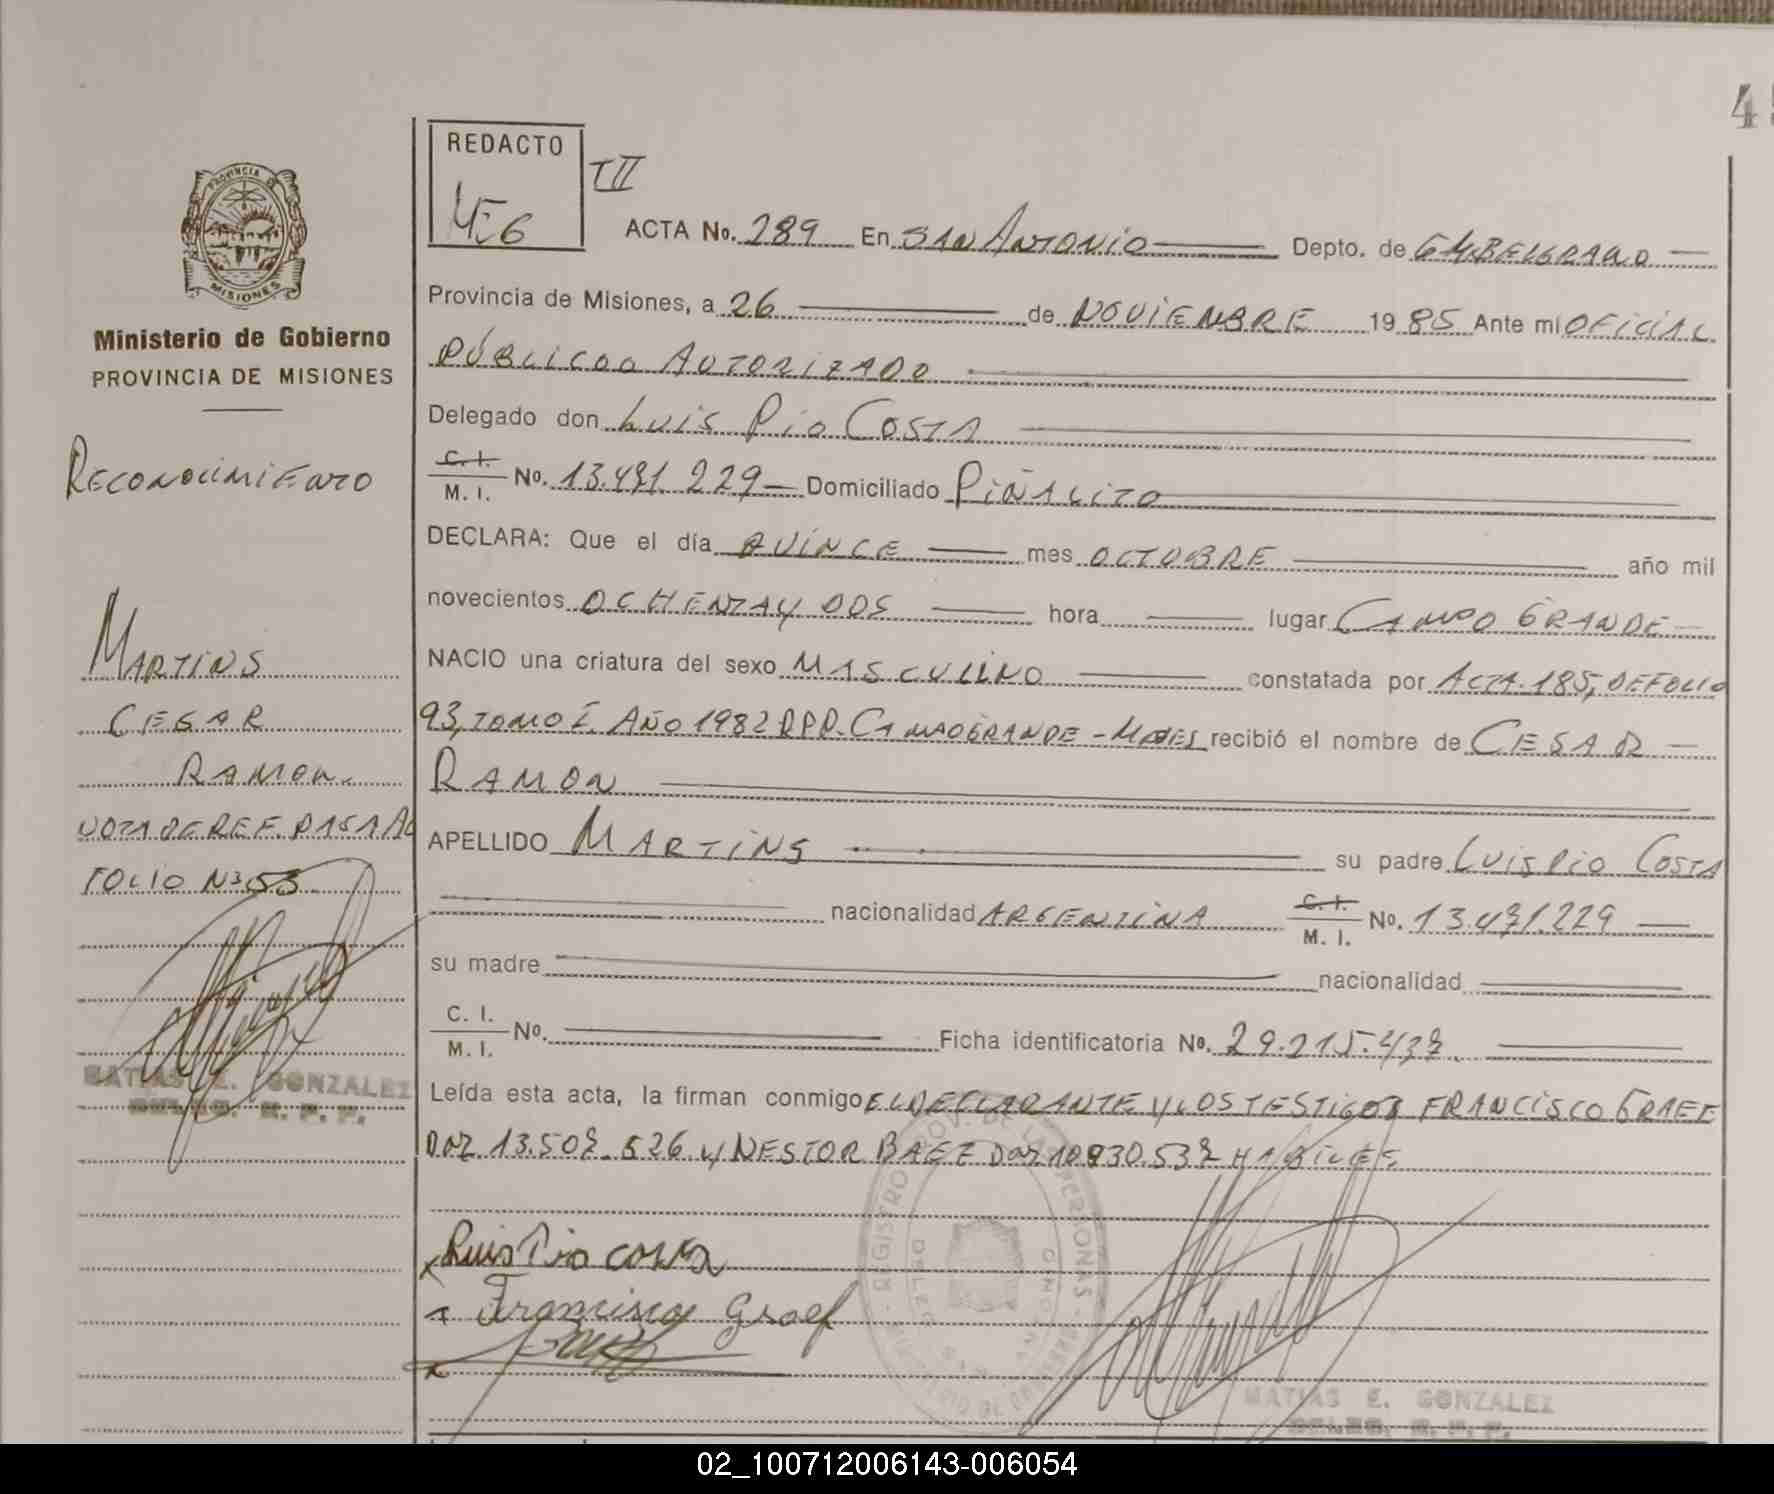 4
REDACTO
TII
ACTA No. 289 En SAN ANTONIO Depto. de GM. BELGRANO
Provincia de Misiones, a 26 de NOVIEMBRE 1985 Ante mi OFICIAL
PÚBLICO AUTORIZADO
Delegado don LUIS PIO COSTA
C. I.
M. I. No. 13.471.229 Domiciliado PIÑALITO
DECLARA: Que el día QUINCE mes OCTOBRE año mil
novecientos OCHENTA Y DOS hora lugar CAMPO GRANDE
NACIO una criatura del sexo MASCULINO constatada por ACTA.185, DE FOLIO
93, TOMO I. AÑO 1982 CAMPO GRANDE - recibió el nombre de CESAR
RAMON
APELLIDO MARTINS su padre LUIS PIO COSTA
nacionalidad ARGENTINA C. I.
M. I. No. 13.471.229
su madre nacionalidad
C. I.
M. I. No. Ficha identificatoria No. 29.215.437.
Leída esta acta, la firman conmigo EL DECLARANTE Y LOS TESTIGOS FRANCISCO GRAEF
13.507.526 Y NESTOR BAEZ HABILES.
Luis Pio Costa
Francisco Graef
MATIAS E. GONZALEZ
DELEG. R. P. P.
PROVINCIA DE
MISIONES
Ministerio de Gobierno
PROVINCIA DE MISIONES
RECONOCIMIENTO
MARTINS
CESAR
RAMON.
NOTA DE REF. PASA AL
FOLIO Nº 53
MATIAS E. GONZALEZ
DELEG. R. P. P.
02_100712006143-006054